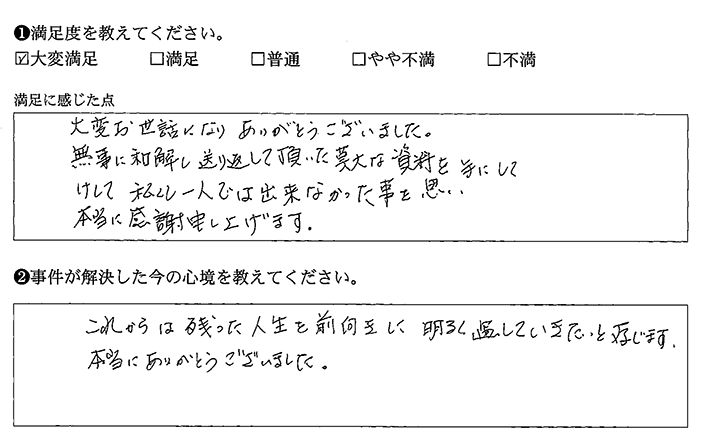 ❶満足度を教えてください。
☑大変満足 □満足 □普通 □やや不満 □不満
満足に感じた点
大変お世話になりありがとうございました。
無事に和解し送り返して頂いた莫大な資料を手にして
けして私し一人では出来なかった事を思い
本当に感謝申し上げます。
❷事件が解決した今の心境を教えてください。
これからは残った人生を前向きに明るく過していきたいと存じます。
本当にありがとうございました。